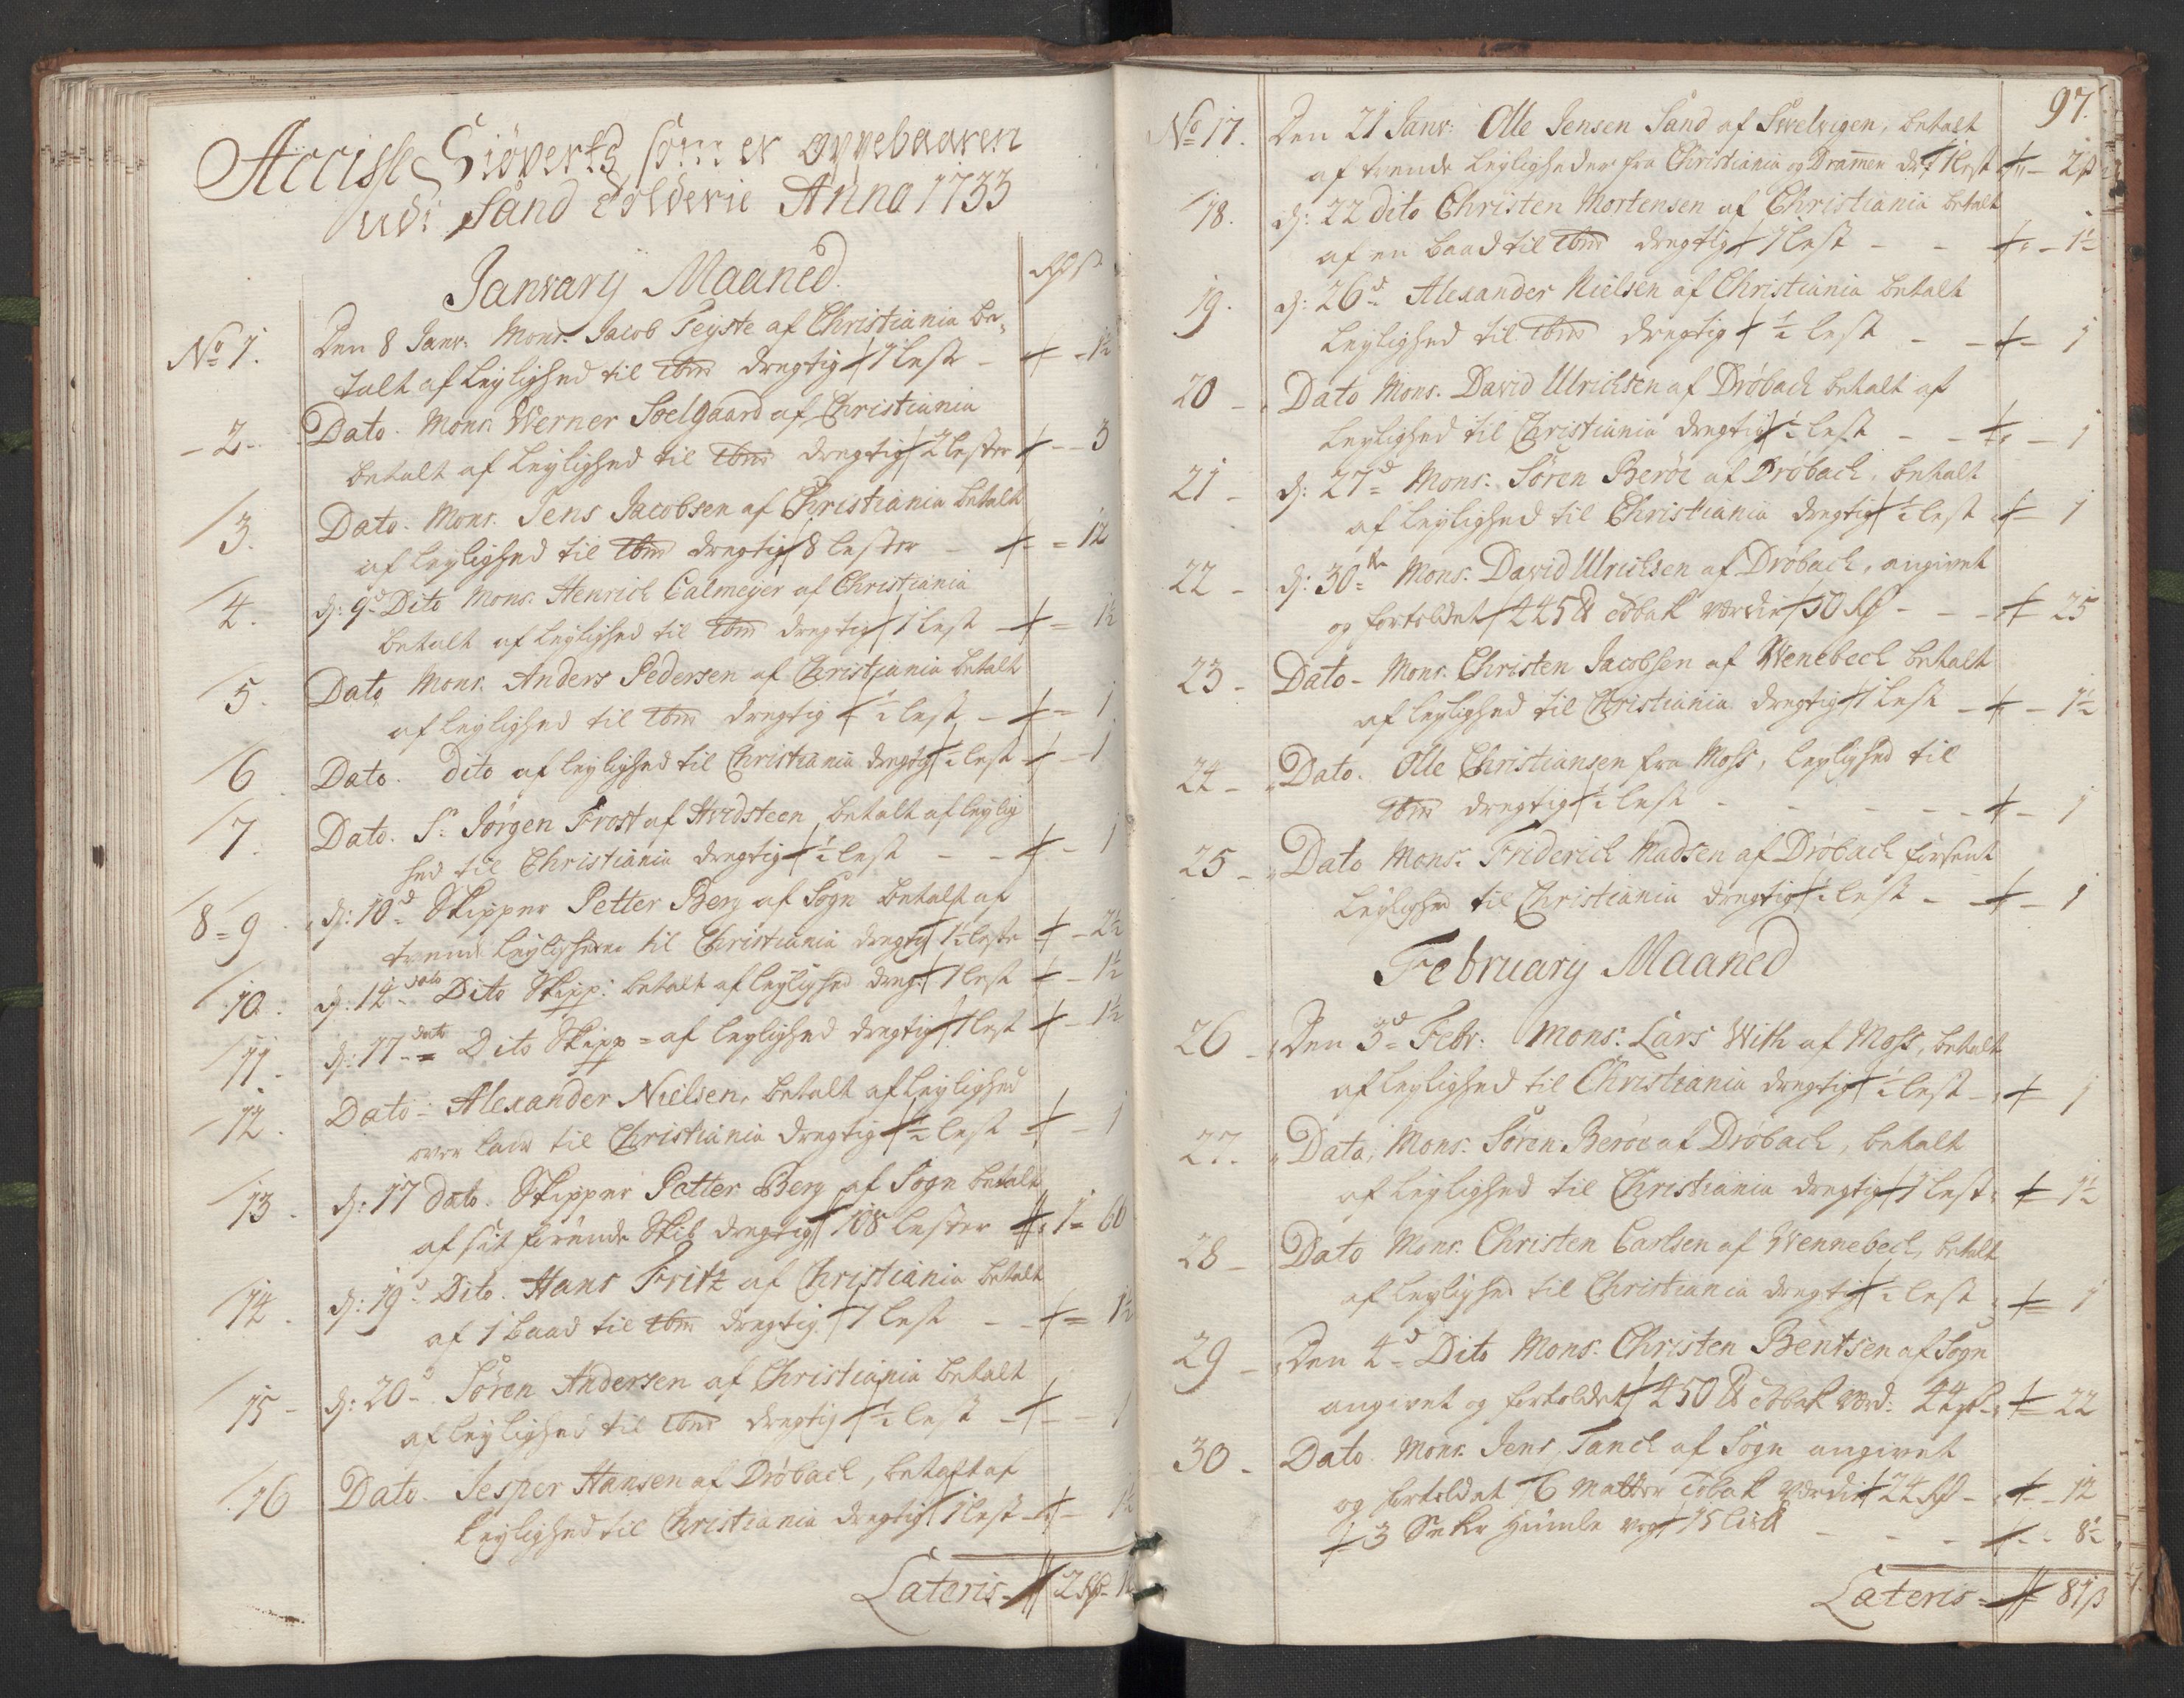 Accisse Siøverts, som er oppebaaren
udi Sand Tolderie Anno 1733
Janvary Maaned.
Rd ß
No 1. Den 8 Janv: Mons. Jacob Feyste af Christiania be„
talt af Leylighed til dragtig 1 lest - 1½
- 2 - Dato. Mons. Werner Soelgaard af Christiania
betalt af Leylighed til dragtig 2 lester - - 3
3. Dato. Mons. Jens Jacobsen af Christiania betalt
af Leylighed til dragtig 8 lester - = 12
4. d: 9d Dito Mons. Henrich Calmeyer af Christiania
betalt af Leylighed til dragtig 1 lest - = 1½
5. Dato Mons. Anders Pedersen af Christiania betalt
af Leylighed til dragtig ½ lest - = 1
6 Dato. Dito af Leylighed til Christiania dragtig ½ lest - 1
7. Dato. Sr. Jørgen Frost af Hvidsteen betalt af Leylig
hed til Christiania dragtig ½ lest - - - 1
8 = 9 d: 10d Skipper Petter Berg af Sogn betalt af
tvende Leyligheder til Christiania dragtig 1½ lester - 2½
10. d: 14 dato Dito Skipp: betalt af Leylighed dragt 1 lest - 1½
11. d: 17 dato Dito Skipp = af Leylighed dragtig 1 lest - 1½
12. Dato - Alexander Nielsen, betalt af Leylighed
til Christiania dragtig ½ lest - 1
13. d: 17 dato. Skipper Petter Berg af Sogn betalt
af sit førende Skib dragtig 108 lester 1 = 60
14. d: 19d Dito. Hans Fritz af Christiania betalt
af 1 baad til dragtig 1 lest - - = 1½
15 - d: 20d Søren Andersen af Christiania betalt
af Leylighed til dragtig ½ lest - - - 1
16 Dato. Jesper Hansen af Drøbach, betalt af
Leylighed til Christiania dragtig 1 lest - - 1½
Lateris - 2 Rd
97.
No 17. Den 21 Janv: Olle Jensen Sand af Svelvigen, betalt
af tvende Leyligheder fra Christiania og Dramen dr: 1 lest - 2 ß
18. d: 22 dito Christen Mortensen af Christiania betalt
af en baad til dragtig 1 lest - - - 1½
19. d: 26d Alexander Nielsen af Christiania betalt
Leylighed til dragtig ½ lest - - - 1
20 - Dato Mons. David Ulrichsen af Drøbach betalt af
Leylighed til Christiania dragtig ½ lest - - - 1
21 - d: 27d Mons. Søren Berøe af Drøbach, betalt
af Leylighed til Christiania dragtig ½ lest - 1
22 - d: 30te Mons: David Ulrichsen af Drøbach, angivet
og fortoldet 445 ℔ Tobak værdie 50 Rd - - - 25
23 - Dato - Mons. Christen Jacobsen af Wenebech betalt
af Leylighed til Christiania dragtig 1 lest - - 1½
24 - Dato. Olle Christiansen fra Moss, Leylighed til
dragtig ½ lest - - - - - - 1
25 - Dato Mons: Friderich Madsen af Drøbach forsent
Leylighed til Christiania dragtig ½ lest - - - 1
February Maaned
26 - Den 3d Febr: Mons: Lars With af Moss, betalt
af Leylighed til Christiania dragtig ½ lest - 1
27. Dato, Mons. Søren Berøe af Drøbach, betalt
af Leylighed til Christiania dragtig 1 lest 1½
28 - Dato Mons. Christen Carlsen af Wennebech, betalt
af Leylighed til Christiania dragtig ½ lest 1
29 - Den 4d Dito Mons. Christen Bentsen af Sogn
angivet og fortoldet 450 ℔ Tobak værd: 44 Rd 22
30 - Dato. Mons. Jens Tanch af Sogn angivet
og fortoldet 6 Matter Tobak værdie 24 Rd - - 12
3 Sekr Humle 15 Lis℔ - - - - 8½
Lateris - 81 ß